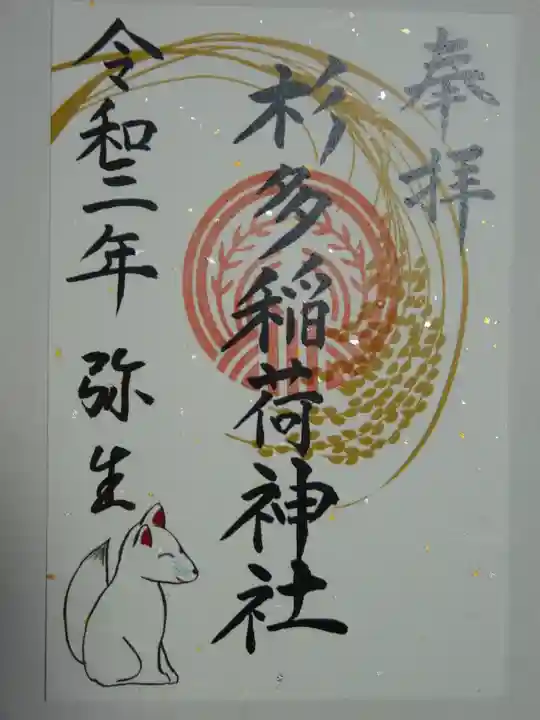 奉拝
杉多稲荷神社
令和二年 弥生